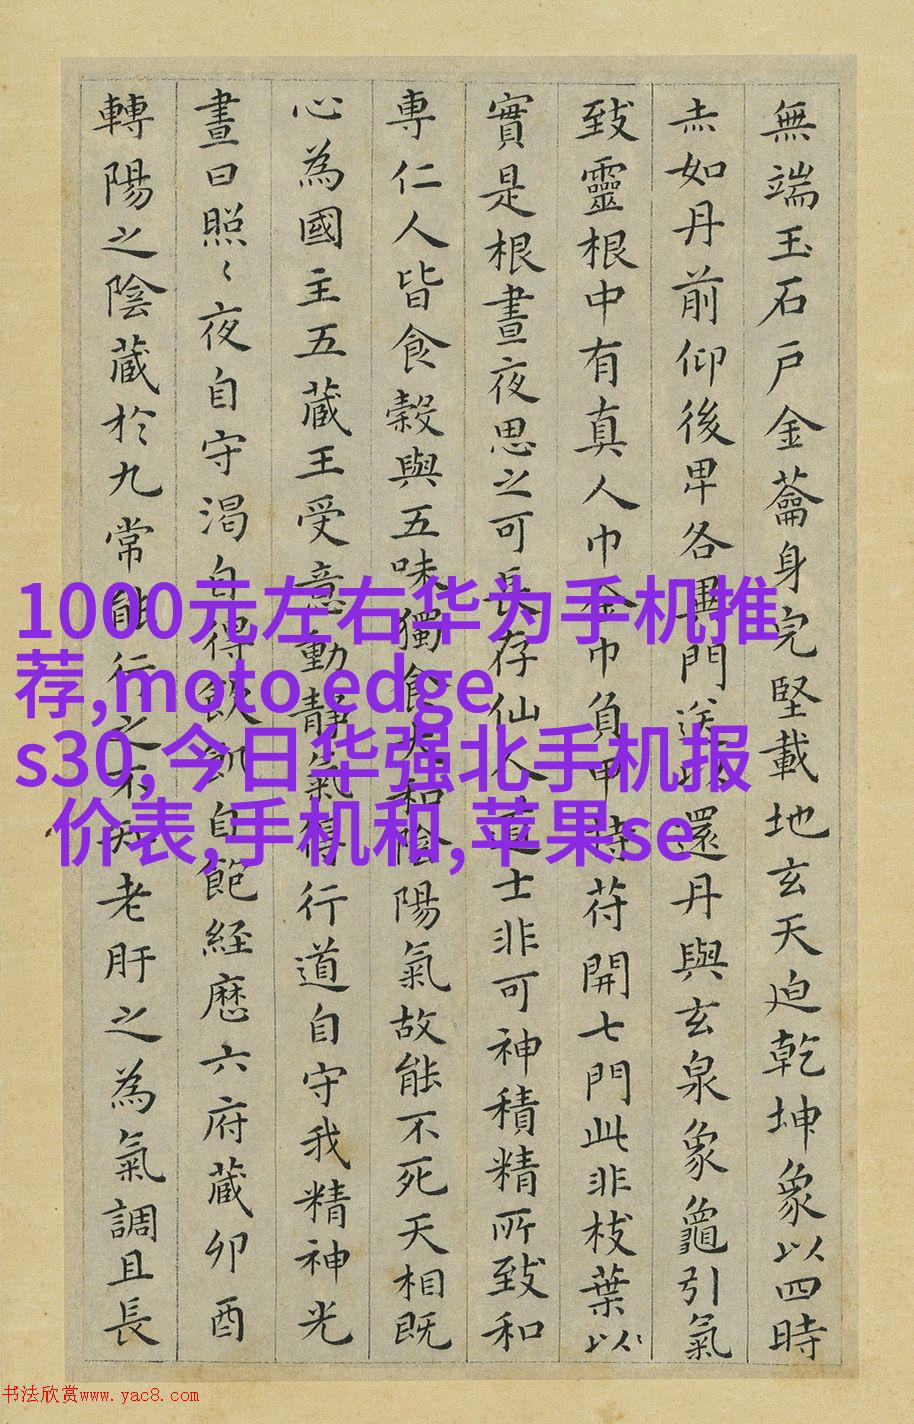 無端玉石戶金蘥身完堅載地玄天迫乾坤象以四時
赤如丹前仰後卑各異門送以還丹與玄泉象龜引氣
致靈根中有真人巾金巾負甲持苻開七門此非枝葉以
實是根晝夜思之可長存仙人道士非可神積精所致和
專仁人皆食榖與五味獨食太和陰陽氣故能不死天相既
心為國主五藏王受意動靜氣得行道自守我精神光
晝日照〻夜自守渴自得飲飢自飽經歷六府藏卯酉
轉陽之陰藏於九常能行之不知老肝之為氣調且長
1000元左右华为手机推
荐,moto edge
s30,今日华强北手机报
价表,手机和,苹果se
书法欣赏www.yac8.com